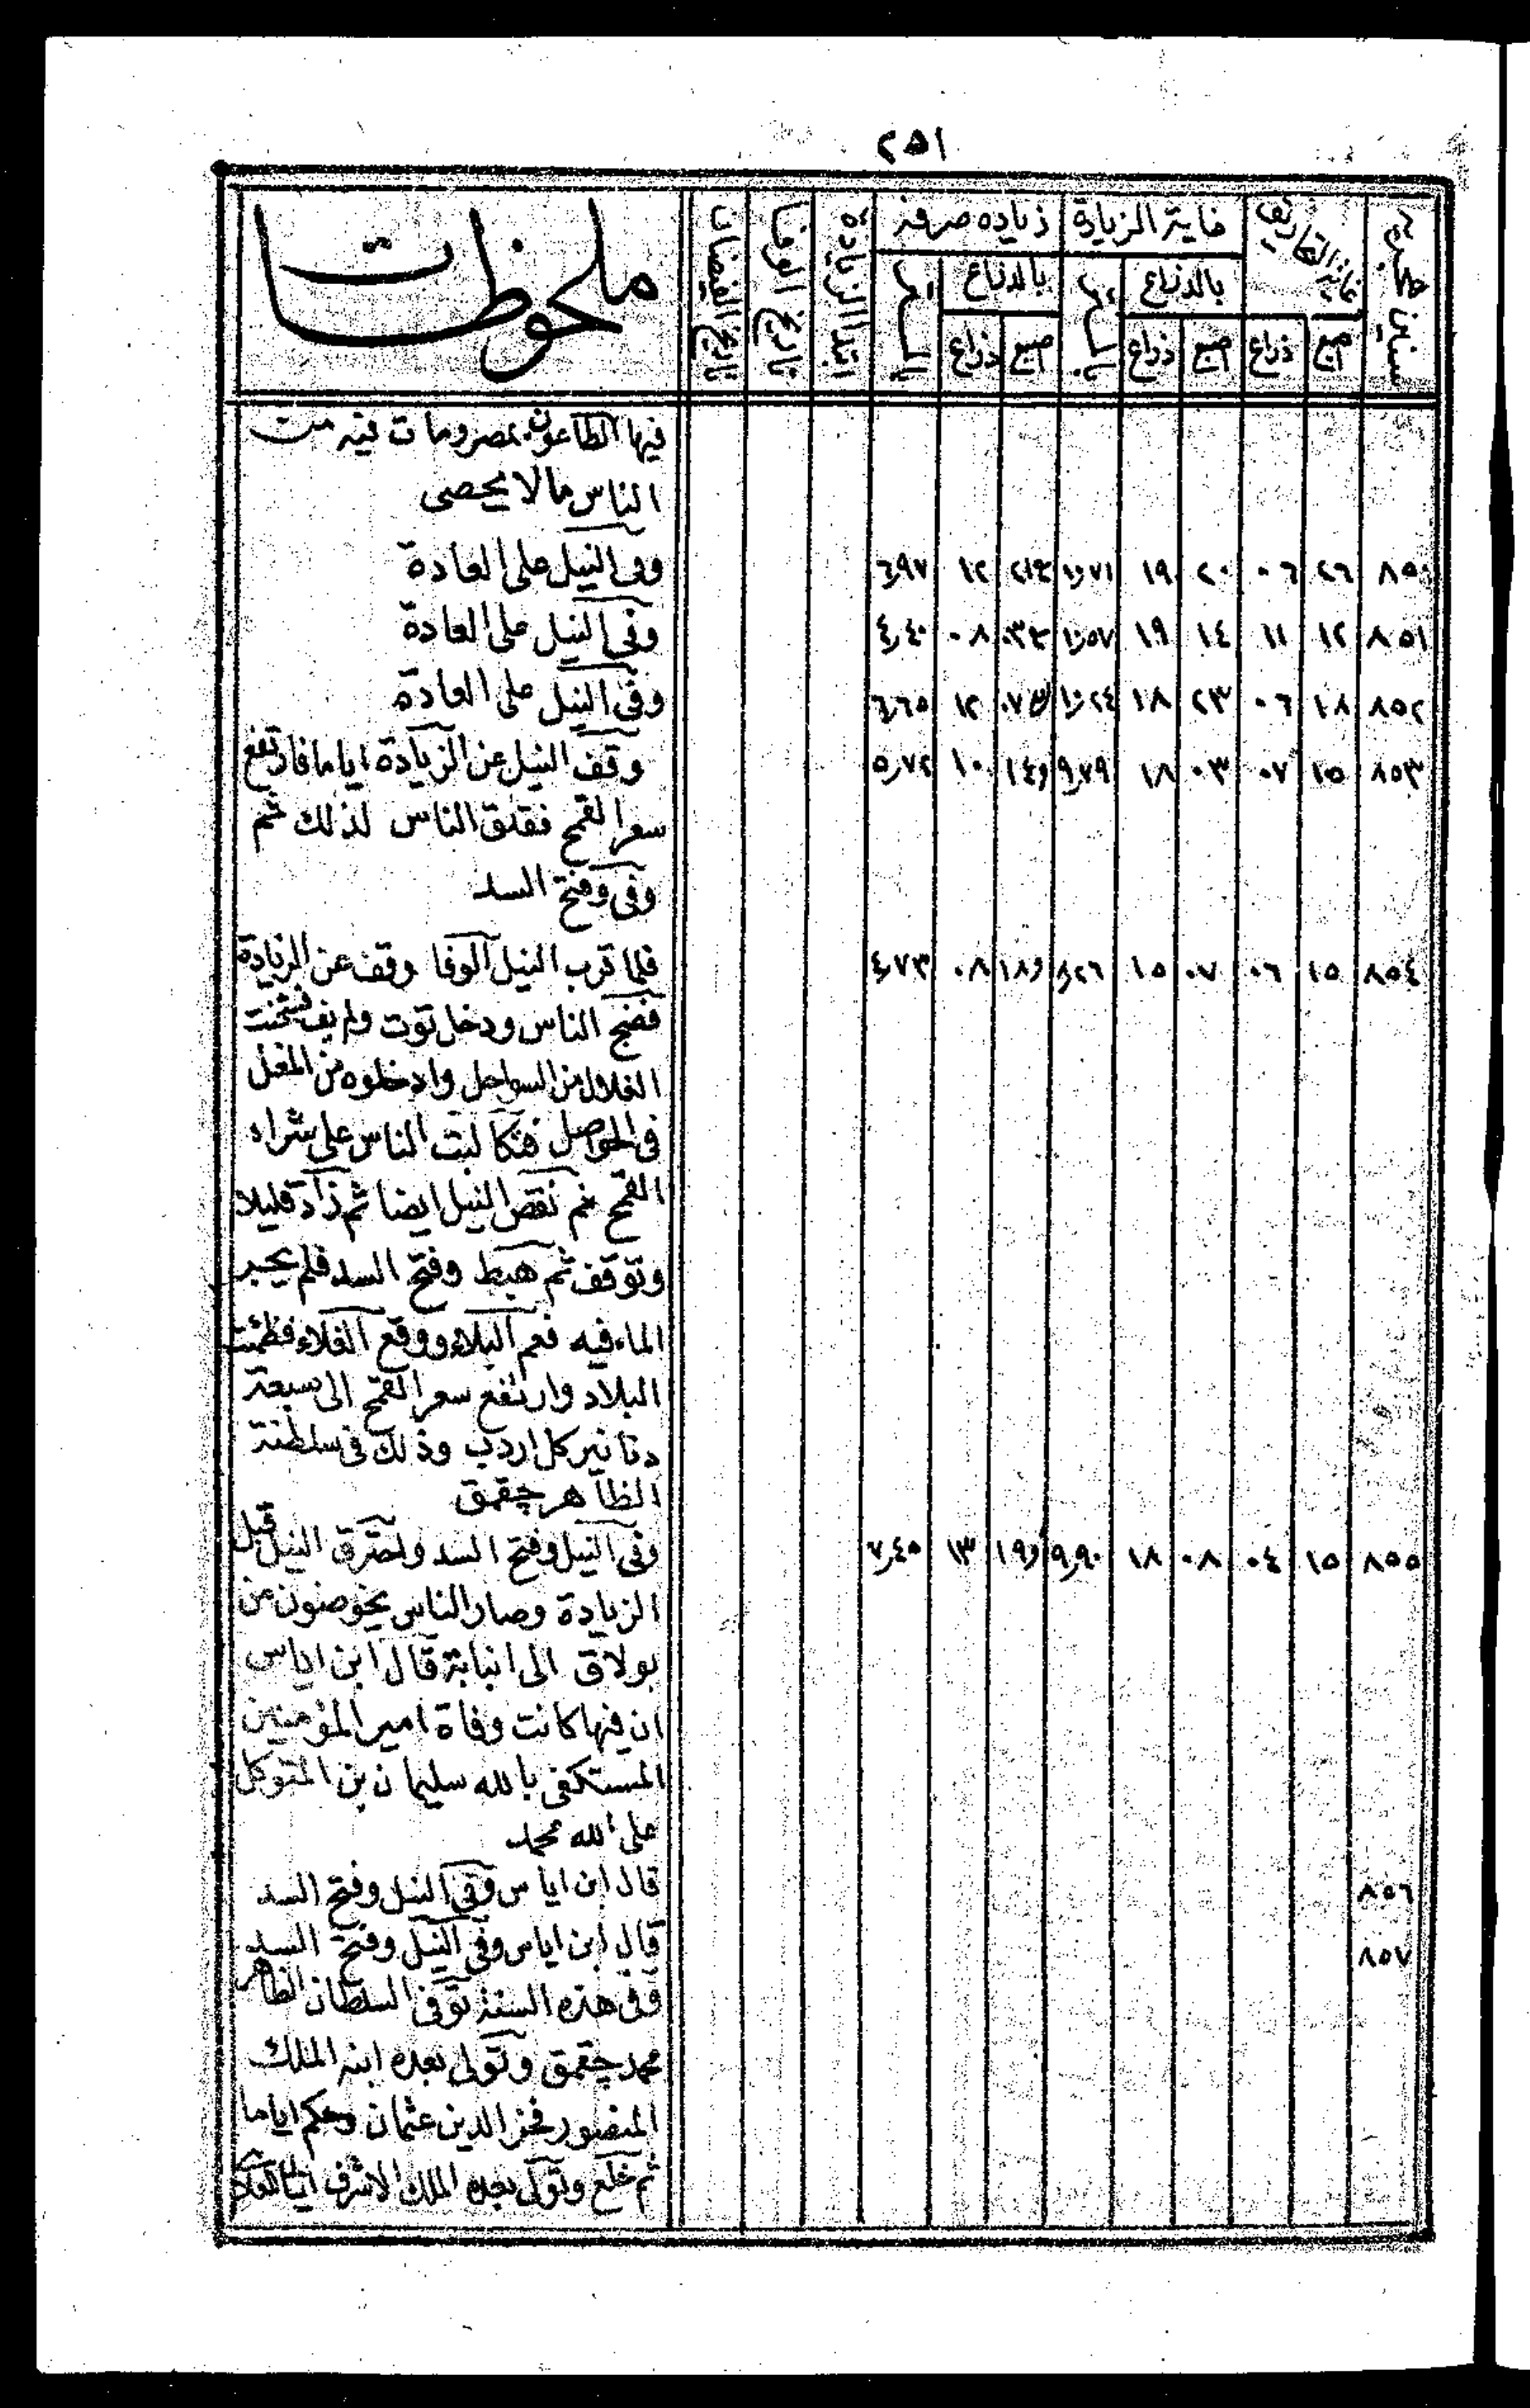 ٢٥١
سنين هجرية | نهاية التحاريق | غاية الزيادة | زيادة صرفه | ابتدا الزيادة | تاريخ الوفا | تاريخ الفيضات | ملحوظات
بالذراع | بالذراع
اصبع | ذراع | اصبع | ذراع | اصبع | ذراع
فيها الطاعون بمصر ومات فيه من
الناس مالا يحصى
٨٥٠ | ٢٦ | ٠٦ | ٢٠ | ١٩ | ١٠٫٧١ | ١٢ | ٦٫٩٧ | وفى النيل على العادة
٨٥١ | ١٢ | ١١ | ١٤ | ١٩ | ١٠٫٥٧ | ٠٨ | ٤٫٤٠ | وفى النيل على العادة
٨٥٢ | ١٨ | ٠٦ | ٢٣ | ١٨ | ١٠٫٢٤ | ١٢ | ٦٫٦٥ | وفى النيل على العادة
٨٥٣ | ١٥ | ٠٧ | ٠٣ | ١٨ | ٩٫٧٩ | ١٤ | ١٠ | ٥٫٧٢ | وقف النيل عن الزيادة اياما فارتفع
سعر القمح فقلق الناس لذلك ثم
وفى وفتح السد
٨٥٤ | ١٥ | ٠٦ | ٠٧ | ١٥ | ٨٫٢٦ | ١٨ | ٠٨ | ٤٫٧٣ | فلما قرب النيل الوفا وقف عن الزيادة
فضج الناس ودخل توت ولم يف فشحنت
الغلال من السواحل وادخلوه من المغل
فى الحواصل فتكالبت الناس على شراء
القمح ثم نقص النيل ايضا ثم زاد قليلا
وتوقف ثم هبط وفتح السد فلم يجبر
الماء فيه فعم البلاء ووقع الغلاء فظمئت
البلاد وارتفع سعر القمح الى سبعة
دنانير كل اردب وذلك فى سلطنة
الظاهر چقمق
٨٥٥ | ١٥ | ٠٤ | ٠٨ | ١٨ | ٩٫٩٠ | ١٩ | ١٣ | ٧٫٤٥ | وفى النيل وفتح السد واحترق النيل قبل
الزيادة وصار الناس يخوضون من
بولاق الى انبابة قال ابن اياس
ان فيها كانت وفاة امير المؤمنين
المستكفى بالله سليمان بن المتوكل
على الله محمد
٨٥٦ | قال ابن اياس وفى النيل وفتح السد
٨٥٧ | قال ابن اياس وفى النيل وفتح السد
وفى هذه السنة توفى السلطان الظاهر
محمد چقمق وتولى بعده ابنه الملك
المنصور فخر الدين عثمان وحكم اياما
ثم خلع وتولى بعده الملك الاشرف